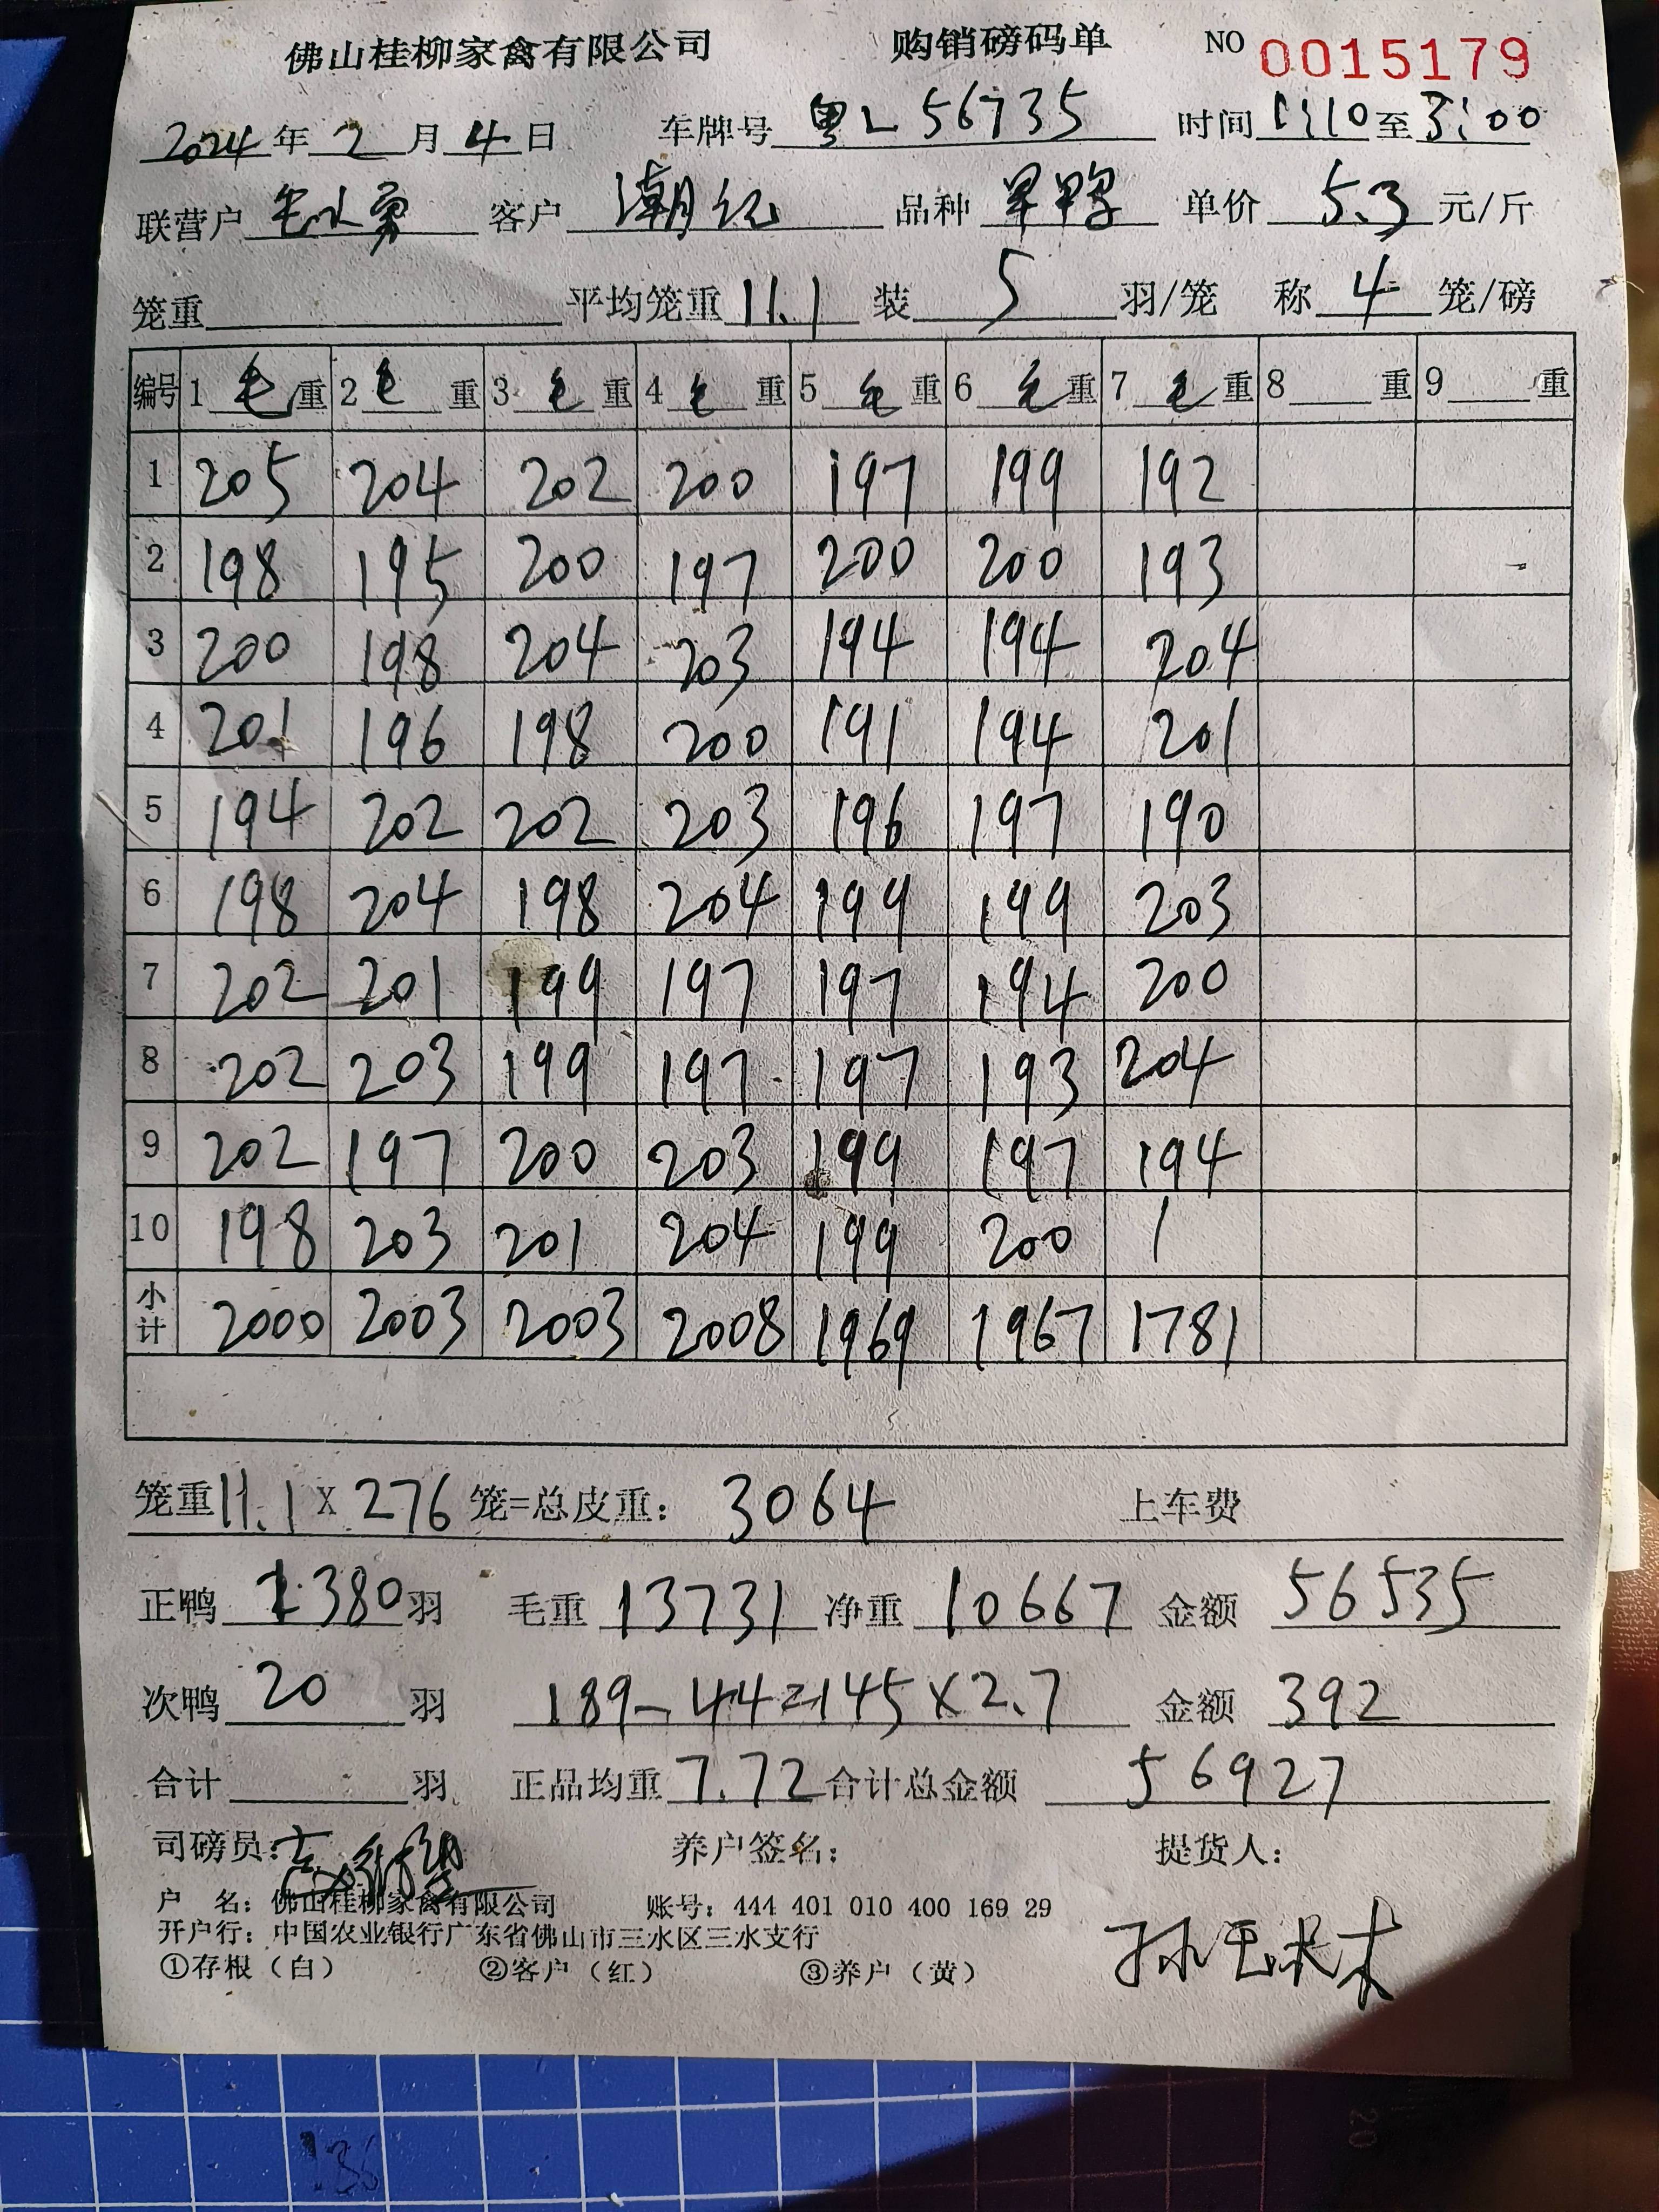 佛山桂柳家禽有限公司 购销磅码单 NO 0015179
2024年2月4日 车牌号 粤L56735 时间 1:10至3:00
联营户 客户 潮记 品种 旱鸭 单价 5.3 元/斤
笼重 平均笼重 11.1 装 5 羽/笼 称 4 笼/磅
编号 1 毛 重 2 毛 重 3 毛 重 4 毛 重 5 毛 重 6 毛 重 7 毛 重 8 重 9 重
1 205 204 202 200 197 199 192
2 198 195 200 197 200 200 193
3 200 198 204 203 194 194 204
4 201 196 198 200 191 194 201
5 194 202 202 203 196 197 190
6 198 204 198 204 199 199 203
7 202 201 199 197 197 194 200
8 202 203 199 197 197 193 204
9 202 197 200 203 199 197 194
10 198 203 201 204 199 200 /
小计 2000 2003 2003 2008 1969 1967 1781
笼重11.1 X 276 笼=总皮重: 3064 上车费
正鸭 1380 羽 毛重 13731 净重 10667 金额 56535
次鸭 20 羽 189-44=145×2.7 金额 392
合计 羽 正品均重 7.72 合计总金额 56927
司磅员: 养户签名: 提货人:
户 名: 佛山桂柳家禽有限公司 账号: 444 401 010 400 169 29
开户行: 中国农业银行广东省佛山市三水区三水支行
①存根（白） ②客户（红） ③养户（黄）